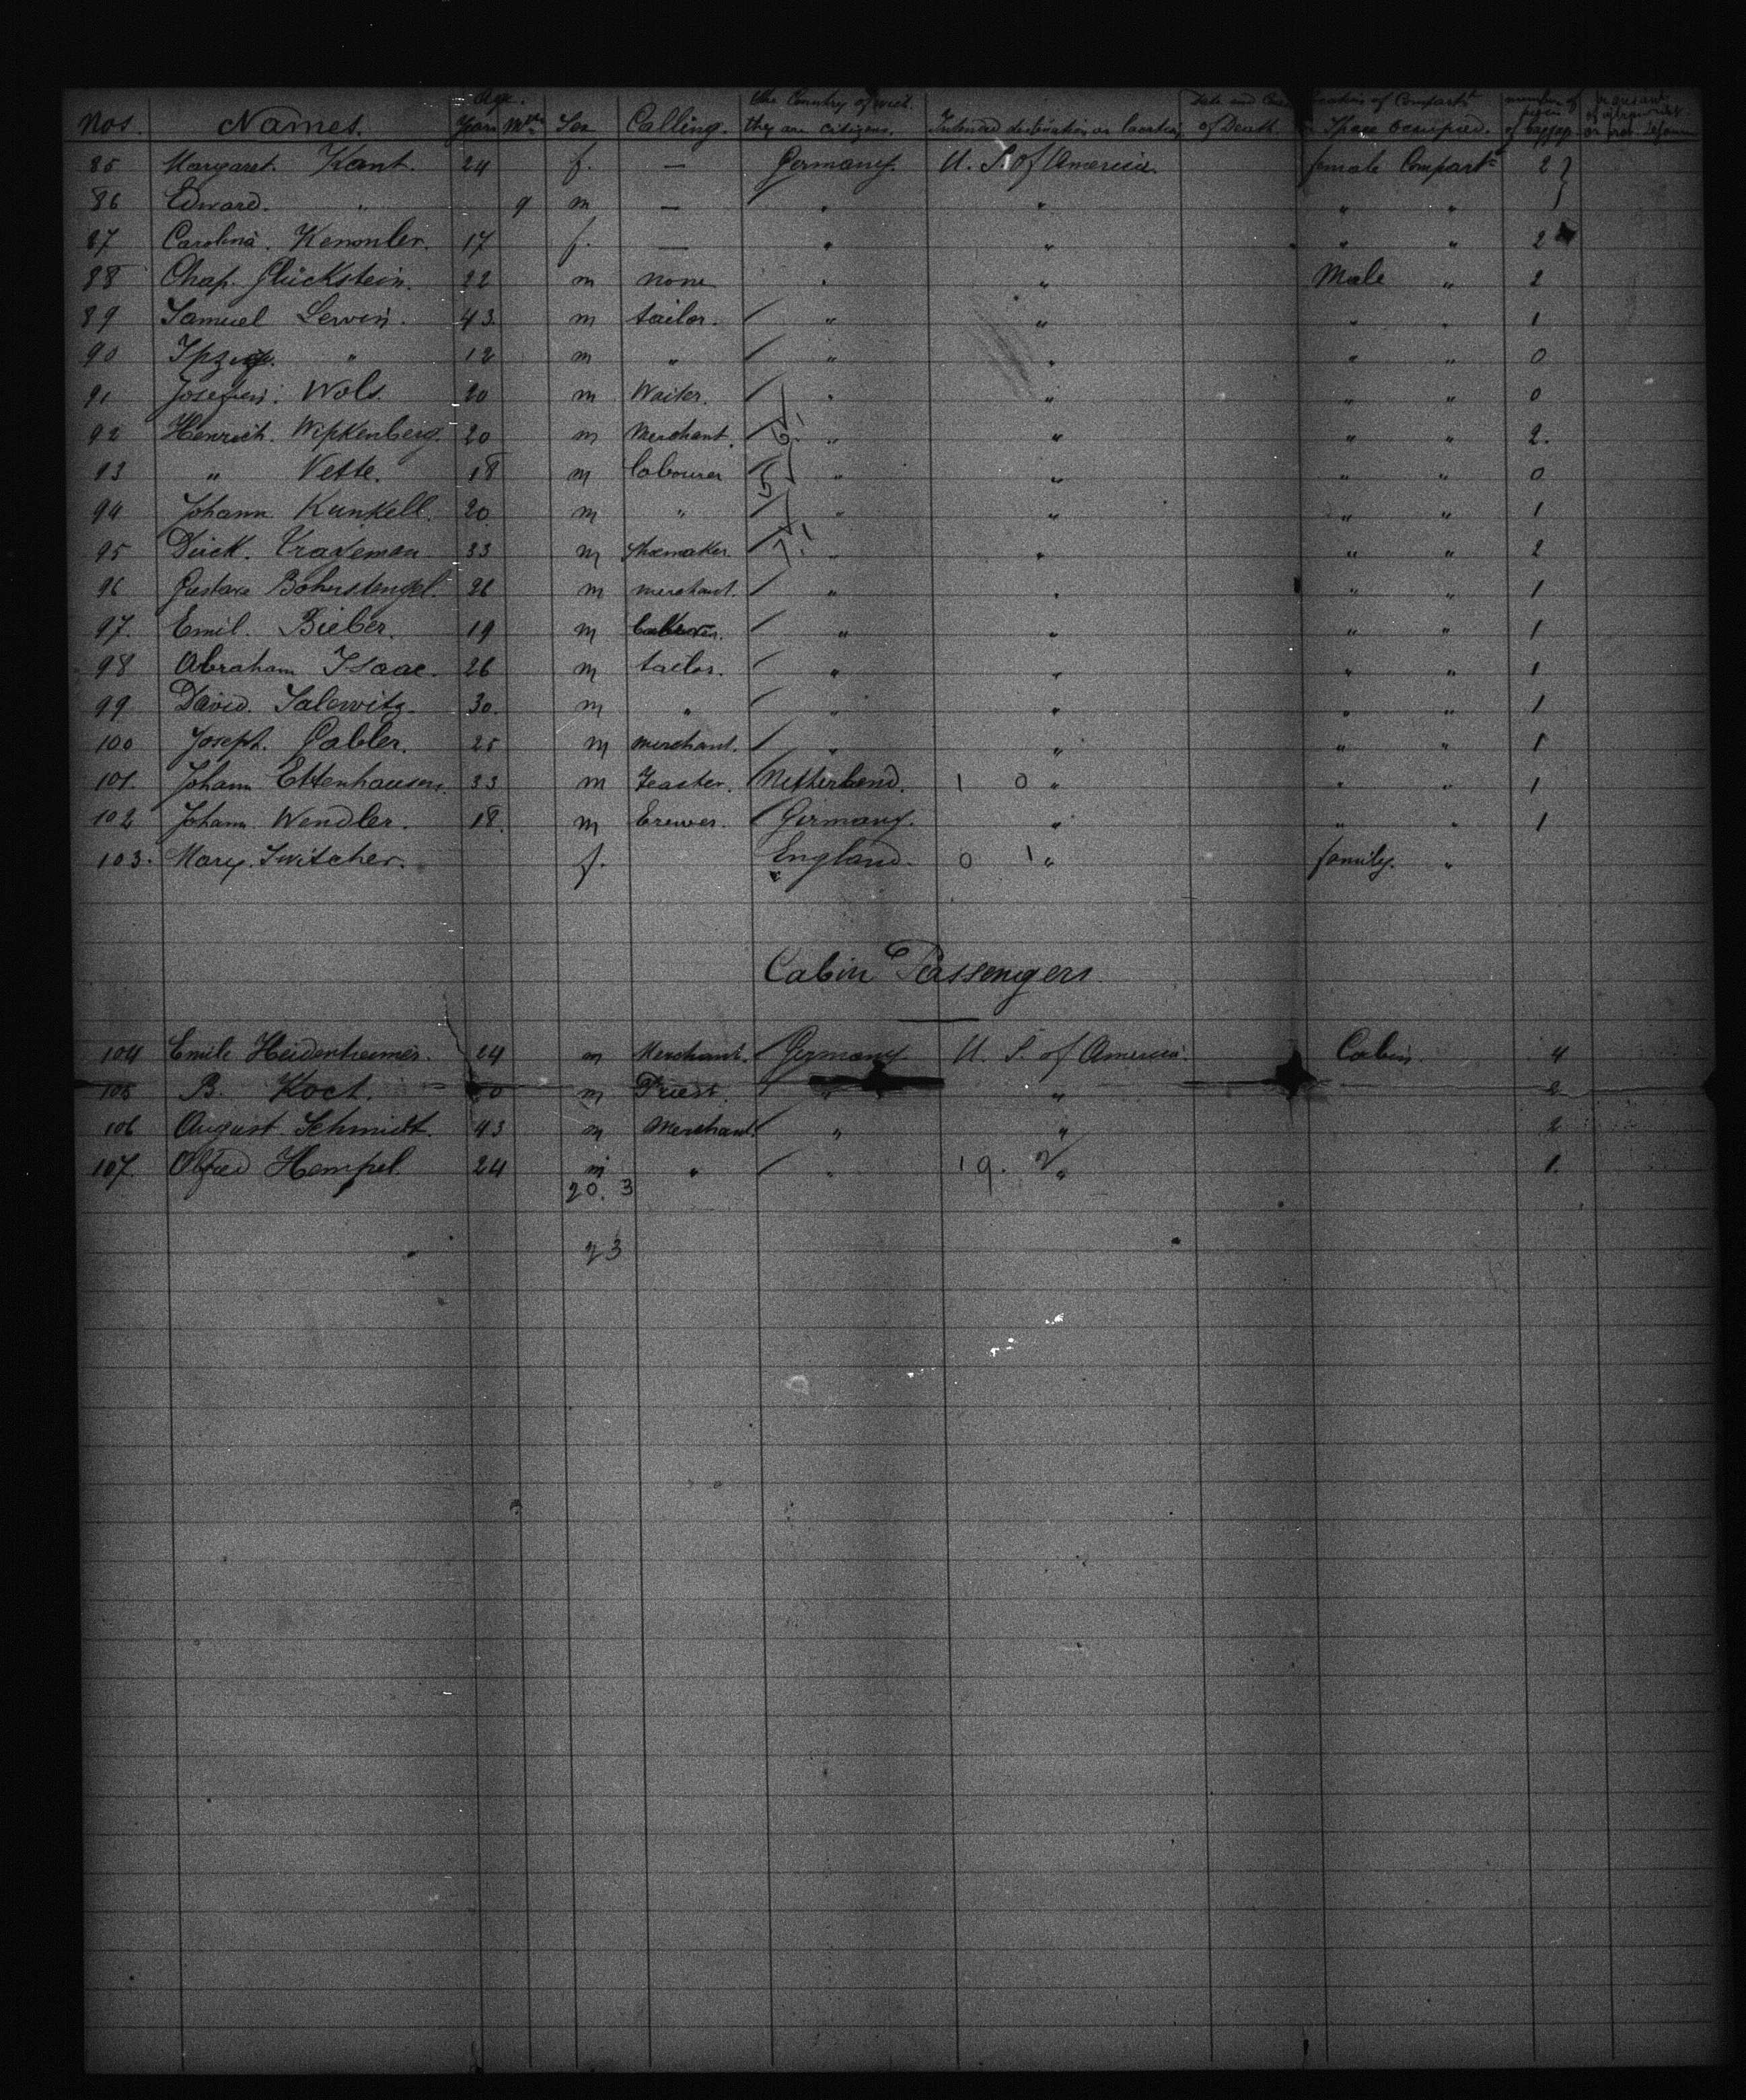 Nos. Names. Age. Years Mths Sex Calling. the Country of wich they are citizens. Intended destination or location Date and Cause of Death Location of Compartt Space occupied. number of pieces of baggage
85 Margaret. Kant. 24 f. — Germany. U. S. of America. female Compartt 2 }
86 Edward. " 9 m — " " " "
87 Carolina. Kemmler. 17 f. — " " " " 2
88 Chas. Glückstein. 22 m none " " Male " 2
89 Samuel Lewin. 43 m tailor. " " " " 1
90 " 12 m " " " " " 0
91 Wols. 20 m Waiter. " " " " 0
92 Henrich. Wipkenberg. 20 m Merchant. " " " " 2.
93 " Vette. 18 m labourer " " " " 0
94 Johann Kunkell. 20 m " " " " " 1
95 Dirck. 33 m shoemaker " " " " 2
96 Gustave 26 m merchant. " " " " 1
97. Emil. Bieber. 19 m " " " " 1
98 Abraham Isaac. 26 m tailor. " " " " 1
99 David. Salewitz. 30. m " " " " " 1
100 Joseph. Gabler. 25 m merchant. " " " " 1
101. Johann Ettenhausen. 33 m Netherland. 1 0 " " " 1
102 Johann. Wendler. 18. m brewer. Germany. " " " 1
103. Mary. Switcher. f. England. 0 1 " family. "
Cabin Passengers.
104 Emile Heidenheimer. 24 m Merchant. Germany U. S. of America. Cabin. 4
105 B. Koch. m Priest. " " 2
106 August Schmidt. 43 m Merchant. " " 2
107. Alfred Hempel. 24 m " " 19. 2 " 1.
20. 3
23